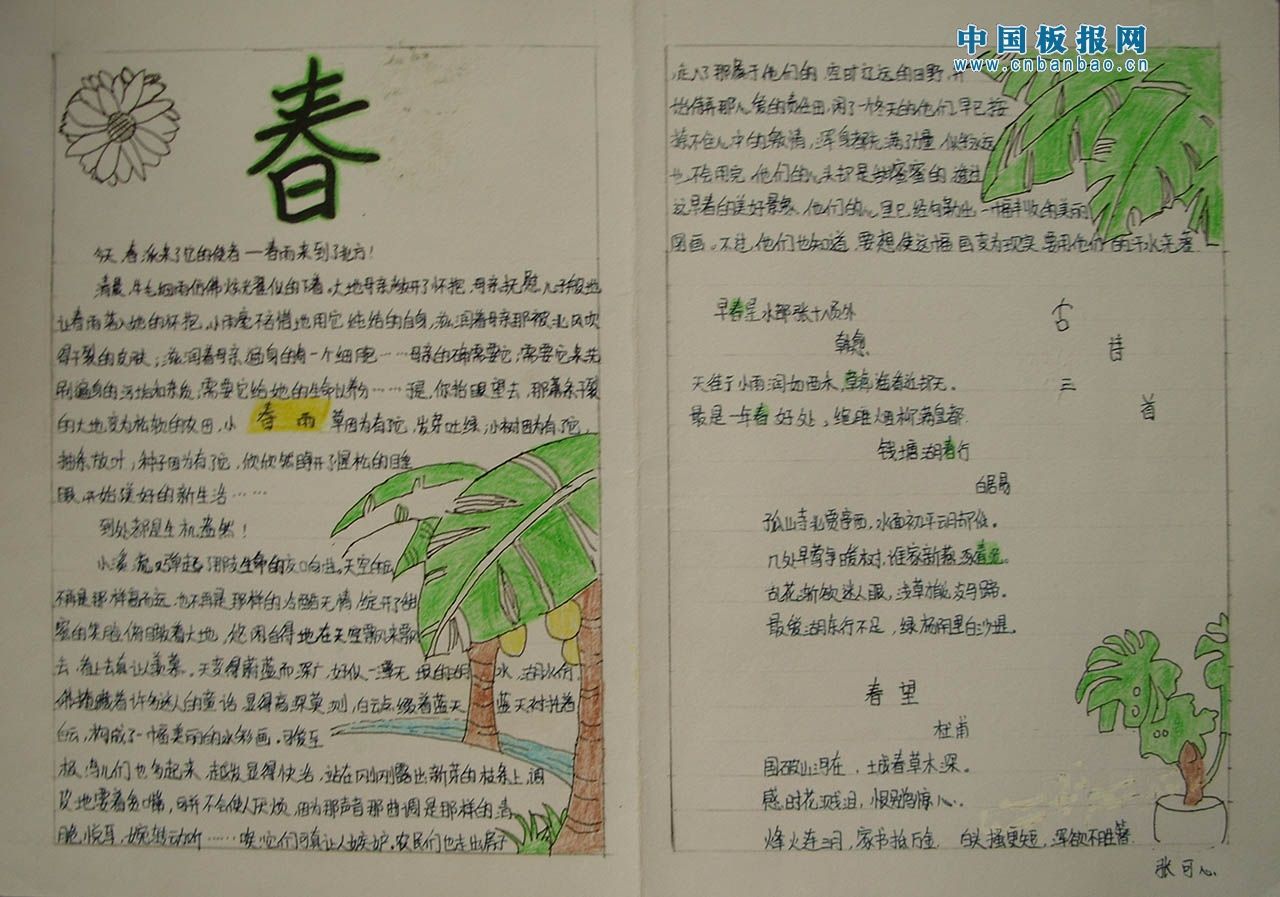 中国板报网
www.cnbanbao.cn
春
今天,春派来了它的使者—春雨来到了北方!
清晨,牛毛细雨仿佛烁光翟似的下着。大地母亲敞开了怀抱,母亲抚慰儿子般地
让春雨落入她的怀抱。小雨毫不吝惜地用它纯洁的自身,滋润着母亲那被北风吹
得干裂的皮肤;滋润着母亲遍身的每一个细胞……母亲的确需要它;需要它来洗
刷遍身的污垢和杂质;需要它给她的生命以养分……于是,你抬眼望去,那幕条干裂
的大地变为松软的农田,小 春雨 草因为有了它,发芽吐绿,小树因为有了它,
抽条放叶;种子因为有了它,欣欣然睁开了惺松的睡
眼,开始美好的新生活……
到处都是生机盎然!
小溪流又弹起了那支生命的交响曲。天空的云
不再是那样高而远,也不再是那样的冷酷无情,绽开了甜
蜜的笑脸俯瞰着大地,悠闲自得地在天空飘来飘
去,看上去真让人羡慕。天变得蔚蓝而深广,好似一潭无 垠的湖水,湖水仿
佛掩藏着许多迷人的童话,显得高深莫测,白云点缀着蓝天 蓝天衬托着
白云,构成了一幅美丽的水彩画。可爱至
极,鸟儿们也多起来,越发显得快活,站在刚刚露出新芽的枝条上,调
皮地耍着多嘴,可并不会使人厌烦,因为那声音那曲调是那样的清
脆,悦耳,婉转动听……唉,它们可真让人嫉妒。农民们也走出屋子
走入了那属于他们的 空旷辽远的田野,开
始侍弄那心爱的责任田,闲了一个冬天的他们,早已按
捺不住心中的激情,浑身都充满了力量,似乎永远
也不会用完,他们的心头却是甜蜜蜜的,遥望
这早春的美好景象,他们的心里已经勾勒出一幅丰收的美丽
图画。不过,他们也知道,要想使这幅画变为现实,要用他们的汗水来灌
古
诗
三
首
早春呈水部张十八员外
韩愈
天街小雨润如酉木,草色遥看近却无。
最是一年春好处,绝胜烟柳满皇都.
钱塘湖春行
白居易
孤山寺北贾亭西,水面初平云脚低。
几处早莺争暖树,谁家新燕啄春泥。
乱花渐欲迷人眼,浅草才能没马蹄。
最爱湖东行不足,绿杨阴里白沙堤。
春望
杜甫
国破山河在,城春草木深。
感时花溅泪,恨别鸟惊心.
烽火连三月,家书抵万金. 白头搔更短,浑欲不胜簪.
张可心